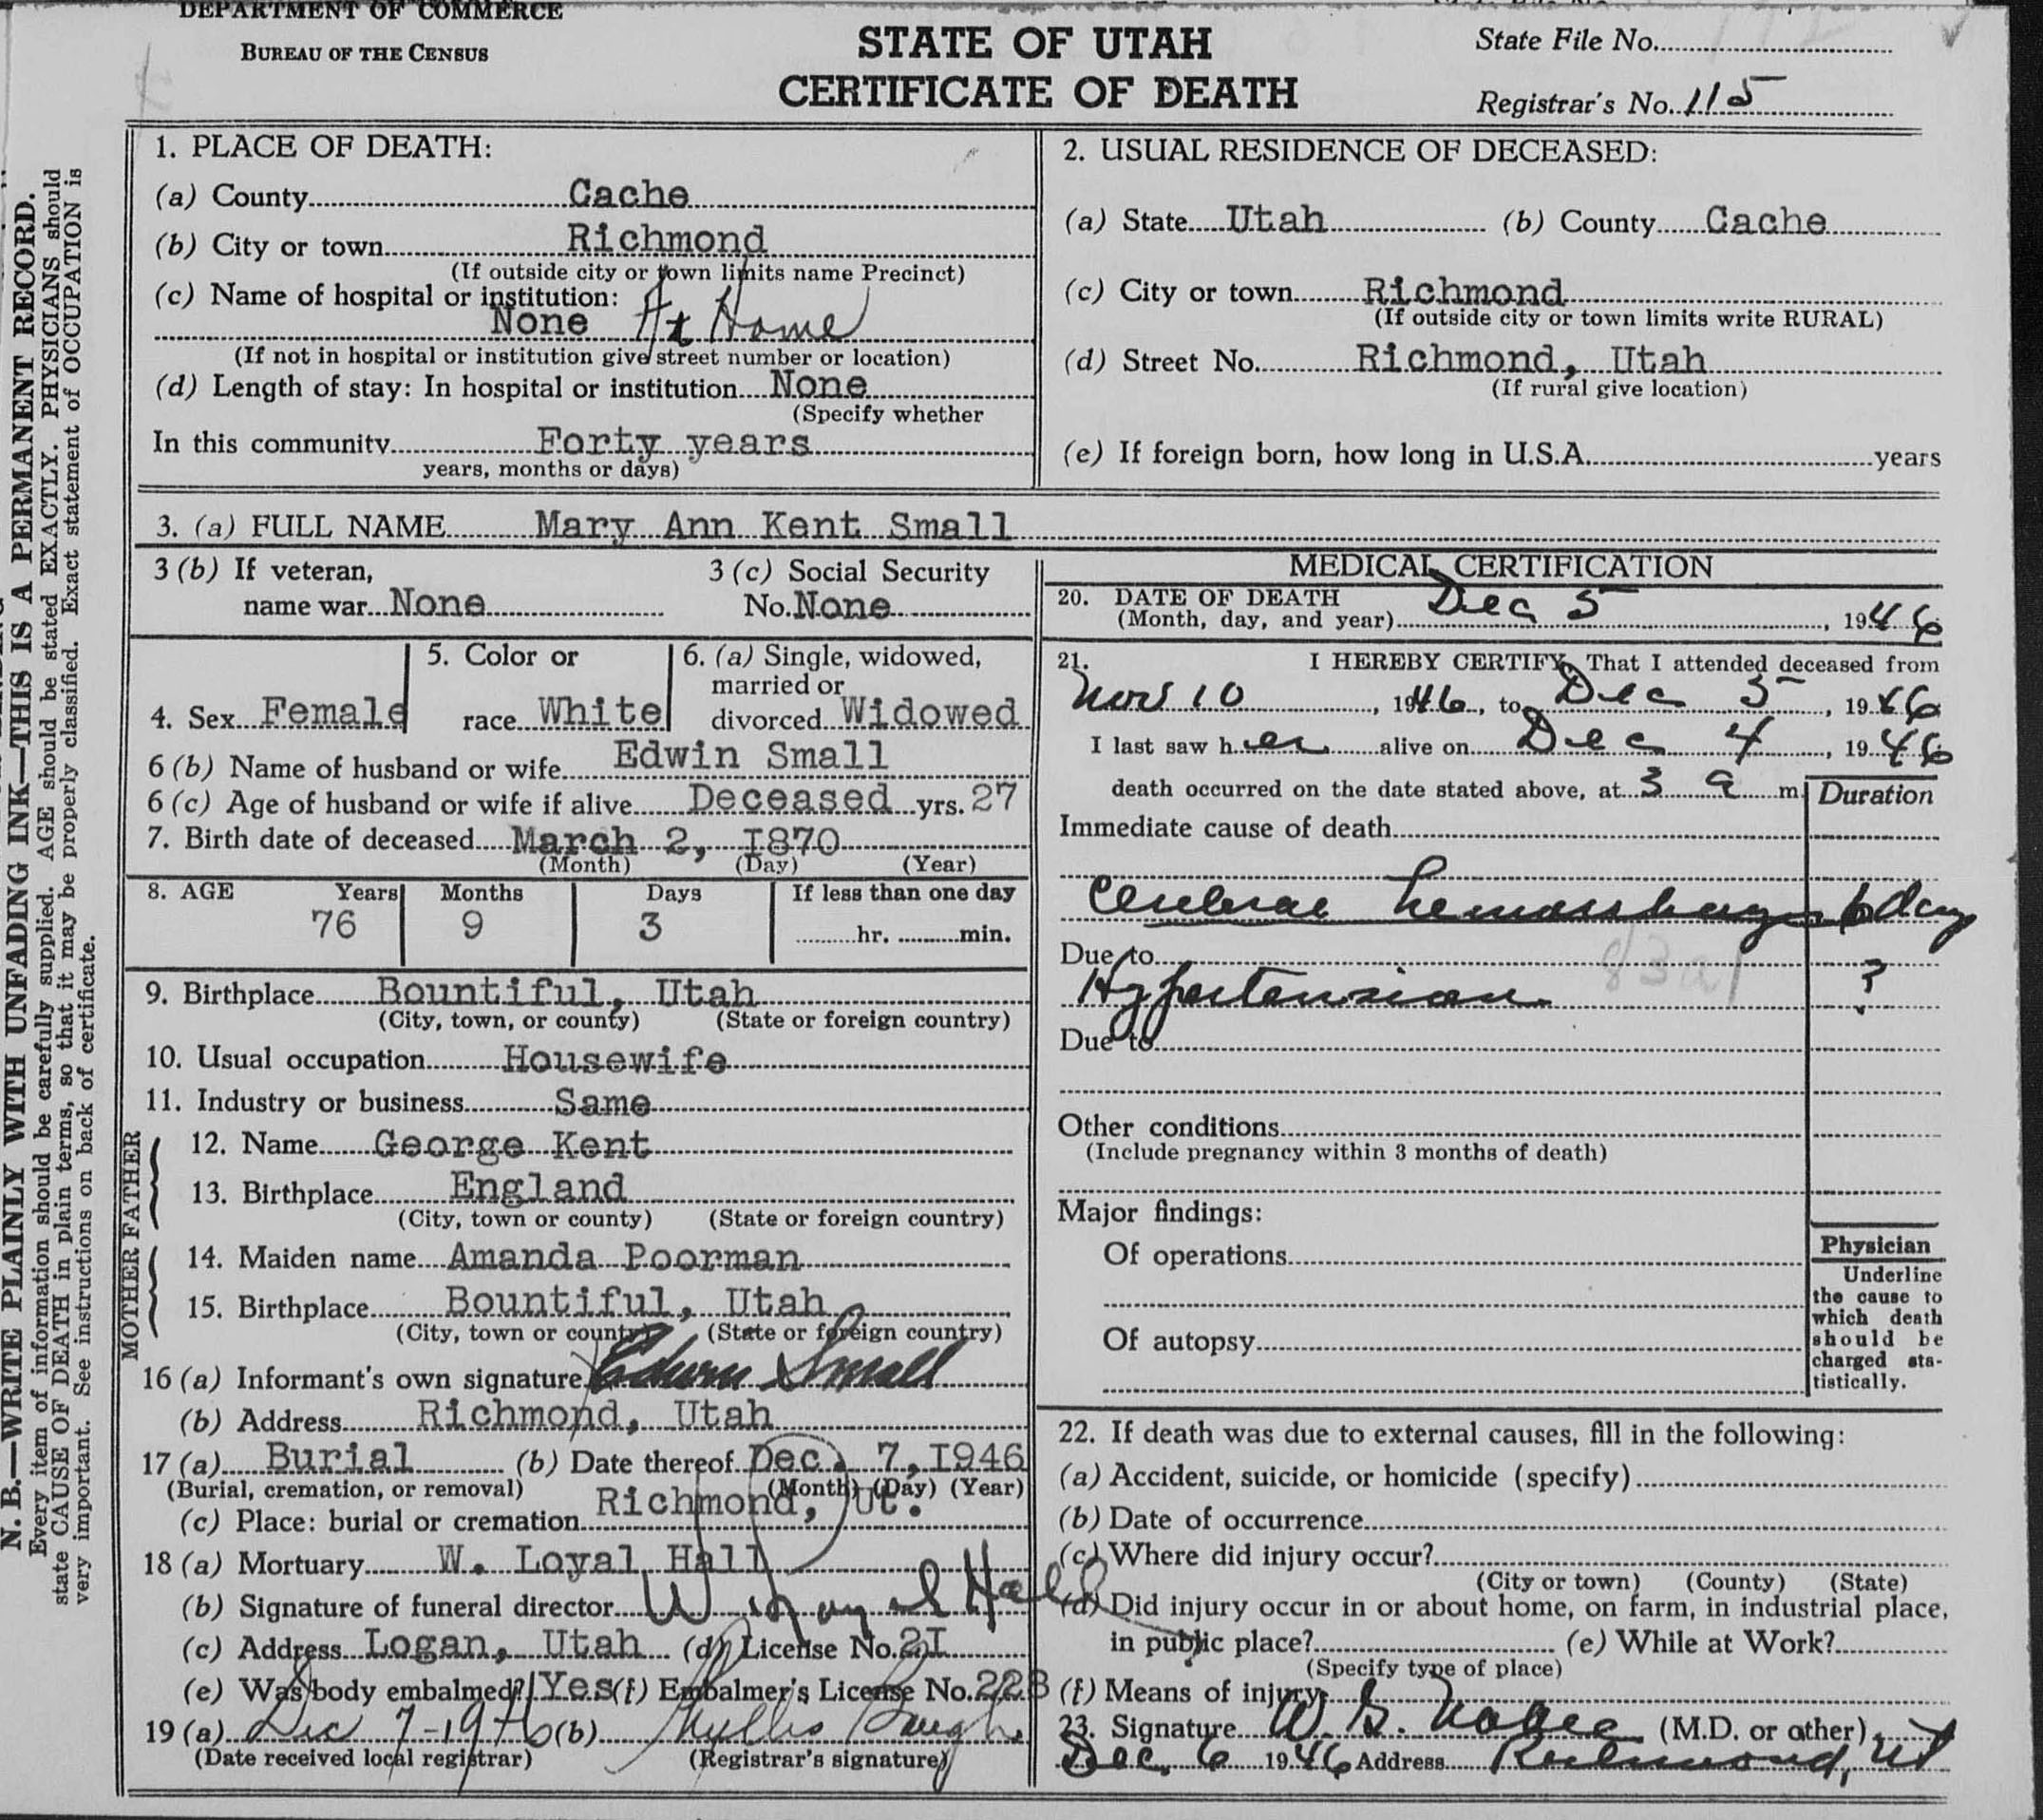 DEPARTMENT OF COMMERCE
BUREAU OF THE CENSUS
STATE OF UTAH
CERTIFICATE OF DEATH
State File No.
Registrar's No. 115
N. B.—WRITE PLAINLY WITH UNFADING INK—THIS IS A PERMANENT RECORD.
Every item of information should be carefully supplied. AGE should be stated EXACTLY. PHYSICIANS should
state CAUSE OF DEATH in plain terms, so that it may be properly classified. Exact statement of OCCUPATION is
very important. See instructions on back of certificate.
1. PLACE OF DEATH:
(a) County Cache
(b) City or town Richmond
(If outside city or town limits name Precinct)
(c) Name of hospital or institution:
None At Home
(If not in hospital or institution give street number or location)
(d) Length of stay: In hospital or institution None
(Specify whether
In this community Forty years
years, months or days)
2. USUAL RESIDENCE OF DECEASED:
(a) State Utah (b) County Cache
(c) City or town Richmond
(If outside city or town limits write RURAL)
(d) Street No. Richmond, Utah
(If rural give location)
(e) If foreign born, how long in U.S.A. years
3. (a) FULL NAME Mary Ann Kent Small
3 (b) If veteran,
name war None
3 (c) Social Security
No. None
4. Sex Female
5. Color or
race White
6. (a) Single, widowed,
married or
divorced Widowed
6 (b) Name of husband or wife Edwin Small
6 (c) Age of husband or wife if alive Deceased yrs. 27
7. Birth date of deceased March 2, I870
(Month) (Day) (Year)
8. AGE Years Months Days If less than one day
76 9 3 hr. min.
9. Birthplace Bountiful, Utah
(City, town, or county) (State or foreign country)
10. Usual occupation Housewife
11. Industry or business Same
FATHER
12. Name George Kent
13. Birthplace England
(City, town or county) (State or foreign country)
MOTHER
14. Maiden name Amanda Poorman
15. Birthplace Bountiful, Utah
(City, town or county) (State or foreign country)
16 (a) Informant's own signature Edwin Small
(b) Address Richmond, Utah
17 (a) Burial (b) Date thereof Dec. 7, I946
(Burial, cremation, or removal) (Month) (Day) (Year)
(c) Place: burial or cremation Richmond, Ut.
18 (a) Mortuary W. Loyal Hall
(b) Signature of funeral director W Loyal Hall
(c) Address Logan, Utah (d) License No. 2I
(e) Was body embalmed? Yes (f) Embalmer's License No. 228
19 (a) Dec 7-1946 (b) Phyllis
(Date received local registrar) (Registrar's signature)
MEDICAL CERTIFICATION
20. DATE OF DEATH Dec 5
(Month, day, and year) , 1946
21. I HEREBY CERTIFY, That I attended deceased from
Nov 10, 1946, to Dec 5, 1946
I last saw her alive on Dec 4, 1946
death occurred on the date stated above, at 3 a m.
Duration
Immediate cause of death
Cerebral hemorrhage 6 day
Due to
Hypertension ?
83a1
Due to
Other conditions
(Include pregnancy within 3 months of death)
Major findings:
Of operations
Of autopsy
Physician
Underline
the cause to
which death
should be
charged sta-
tistically.
22. If death was due to external causes, fill in the following:
(a) Accident, suicide, or homicide (specify)
(b) Date of occurrence
(c) Where did injury occur?
(City or town) (County) (State)
(d) Did injury occur in or about home, on farm, in industrial place,
in public place? (e) While at Work?
(Specify type of place)
(f) Means of injury
23. Signature W. G. Noble (M.D. or other)
Dec. 6 1946 Address Richmond, Ut